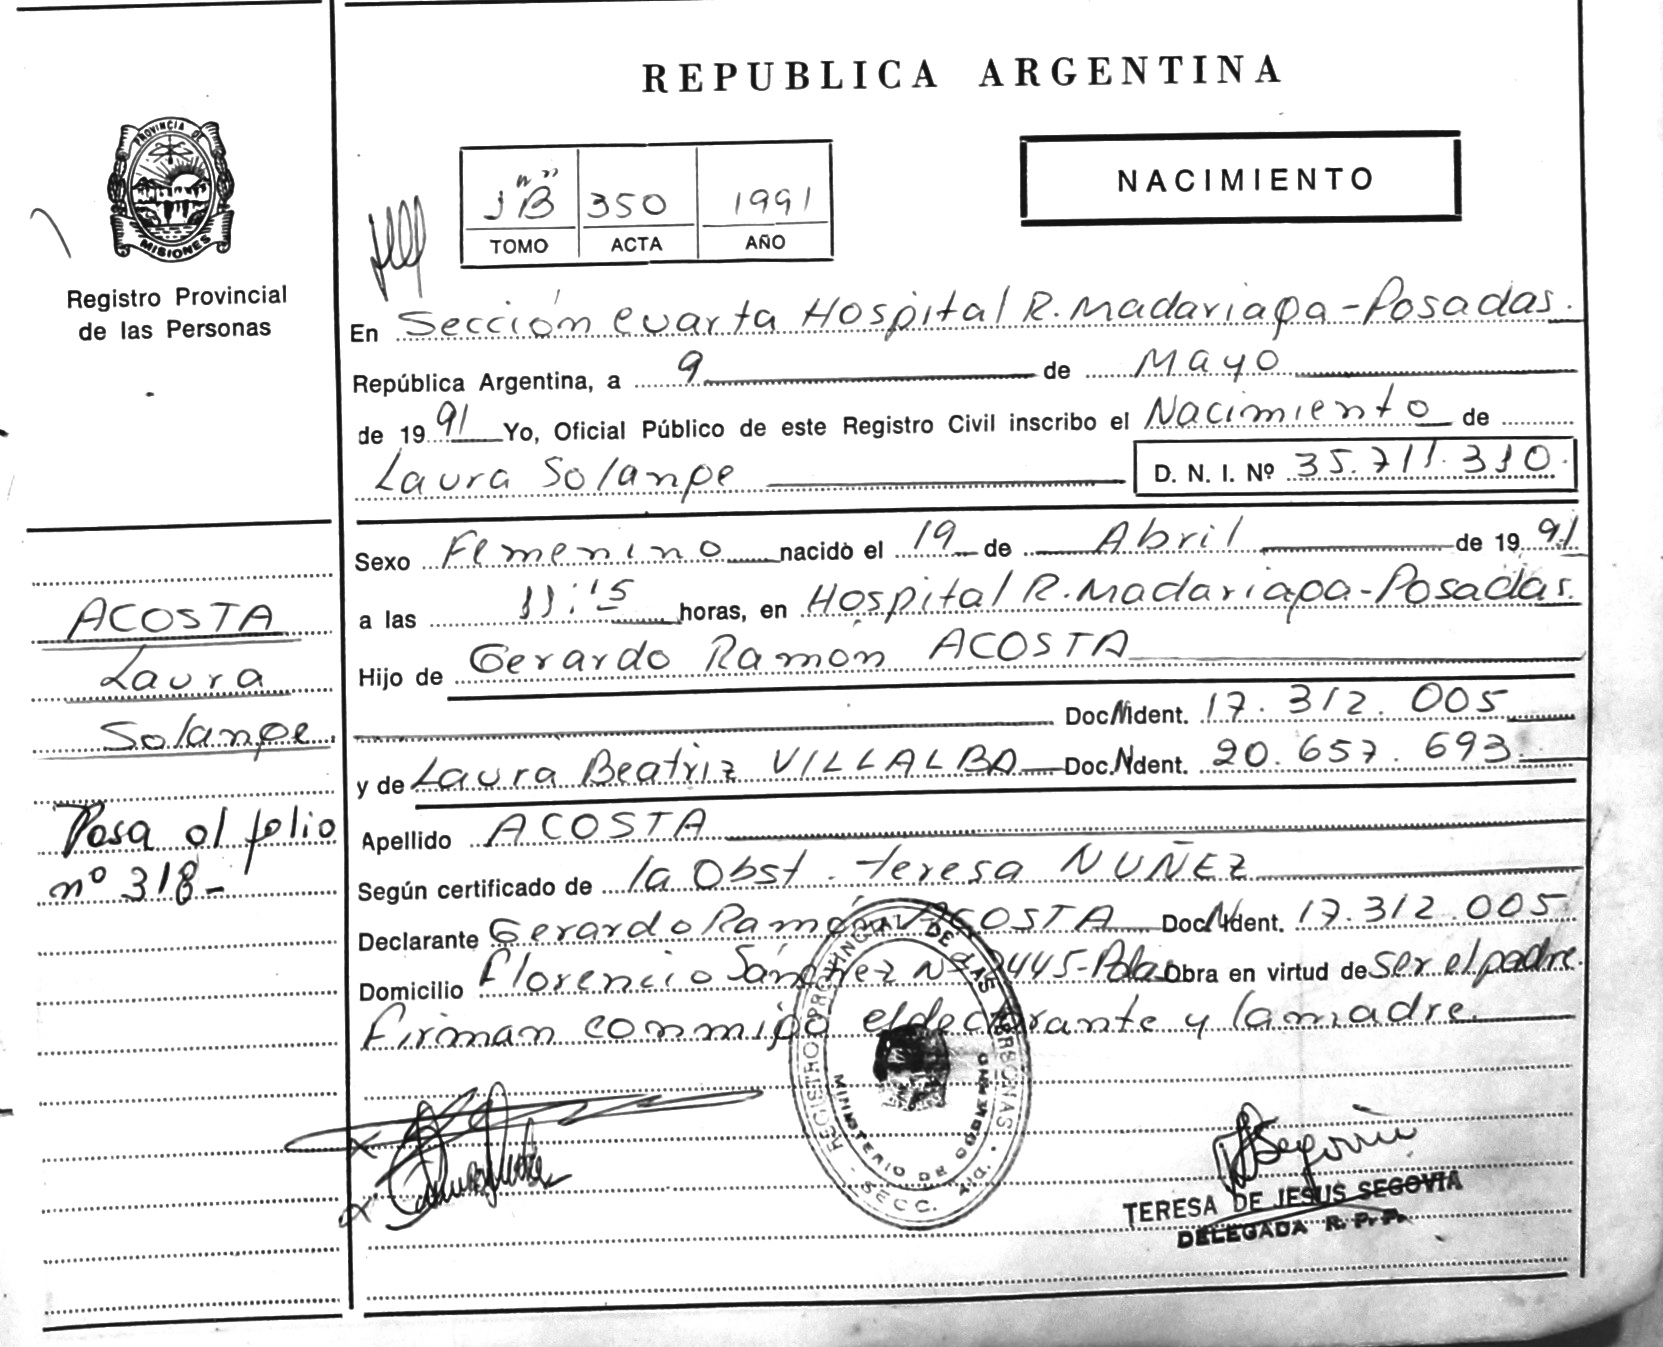 REPUBLICA ARGENTINA
NACIMIENTO
1 "B" 350 1991
TOMO ACTA AÑO
PROVINCIA DE
MISIONES
Registro Provincial
de las Personas
En Sección Cuarta Hospital R. Madariaga-Posadas.
República Argentina, a 9 de Mayo
de 1991 Yo, Oficial Público de este Registro Civil inscribo el Nacimiento de
Laura Solange D. N. I. Nº 35.711.310.
Sexo Femenino nacido el 19 de Abril de 1991
a las 11:15 horas, en Hospital R. Madariaga-Posadas.
Hijo de Gerardo Ramón ACOSTA
Doc. Ident. 17.312.005
y de Laura Beatriz VILLALBA Doc. Ident. 20.657.693
Apellido ACOSTA
Según certificado de la Obst. Teresa NUÑEZ
Declarante Gerardo Ramón ACOSTA Doc. Ident. 17.312.005
Domicilio Florencio Sánchez Nº 2445-Pdas Obra en virtud de ser el padre.
Firman conmigo el declarante y la madre.
ACOSTA
Laura
Solange
Pasa al folio
nº 318-
REGISTRO PROVINCIAL DE LAS PERSONAS
MINISTERIO DE GOBIERNO
SECC. 4ta.
Segovia
TERESA DE JESUS SEGOVIA
DELEGADA R. P. P.